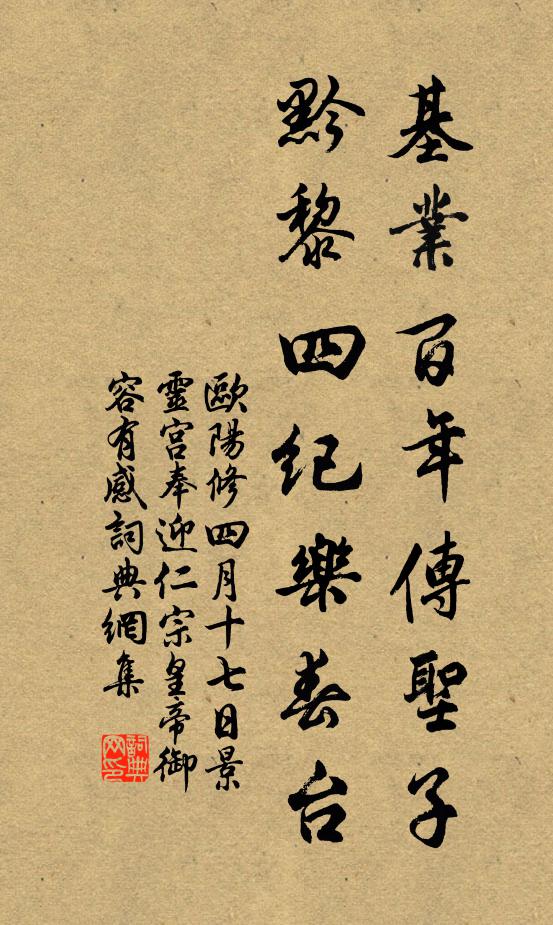 基業百年傳聖子
黔黎四紀樂春台
歐陽修四月十七日景
靈宮奉迎仁宗皇帝御
容有感詞典網集
詞典
网印